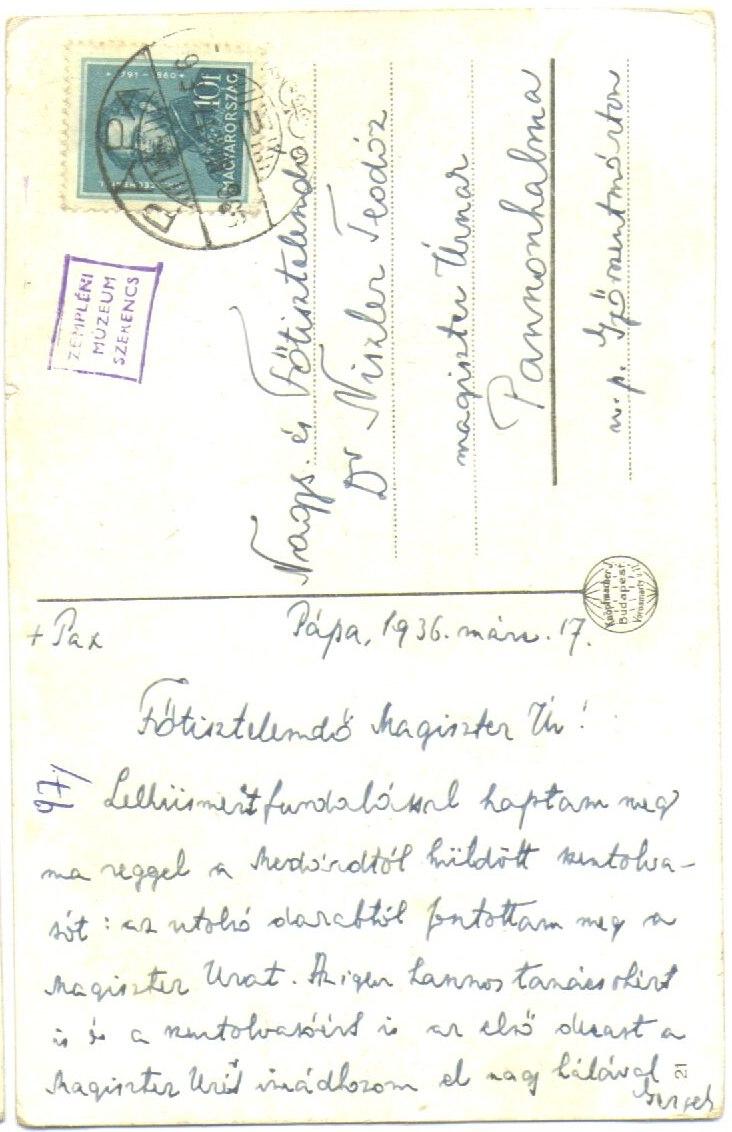 PÁPA
936
10f
MAGYARORSZÁG
1791-1860
ZEMPLÉNI
MÚZEUM
SZERENCS
Nagys. és Főtisztelendő
Dr Niszler Teodóz
magiszter Úrnar
Pannonhalma
u. p. Győrszentmárton
Knöpfmacher
Budapest
Vörösmarty u.
+ Pax
Pápa, 1936. márc. 17.
Főtisztelendő Magiszter Úr!
97/
Lelkiismeretfurdalással kaptam meg
ma reggel a Medárdtól küldött szentolva-
sót: az utolsó darabtól fosztottam meg a
Magiszter Urat. Az igen hasznos tanácsokért
is és a szentolvasóért is az első
a
Magiszter Urért imádkozom el nagy hálával
Gergely
21